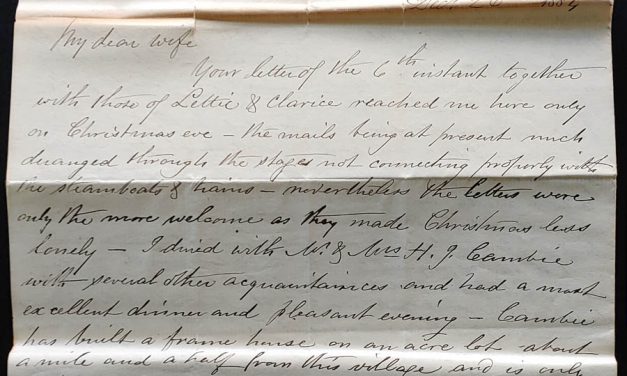 Dec 26 1884
My dear wife
Your letter of the 6th instant together
with those of Lettie & Clarice reached me here only
on Christmas eve – the mails being at present much
deranged through the stages not connecting properly with
the steamboats & trains – nevertheless the letters were
only the more welcome as they made Christmas less
lonely – I dined with Mr. & Mrs H. J. Cambie
with several other acquaintances and had a most
excellent dinner and pleasant evening – Cambie
has built a frame house on an acre lot about
a mile and a half from this village and is only